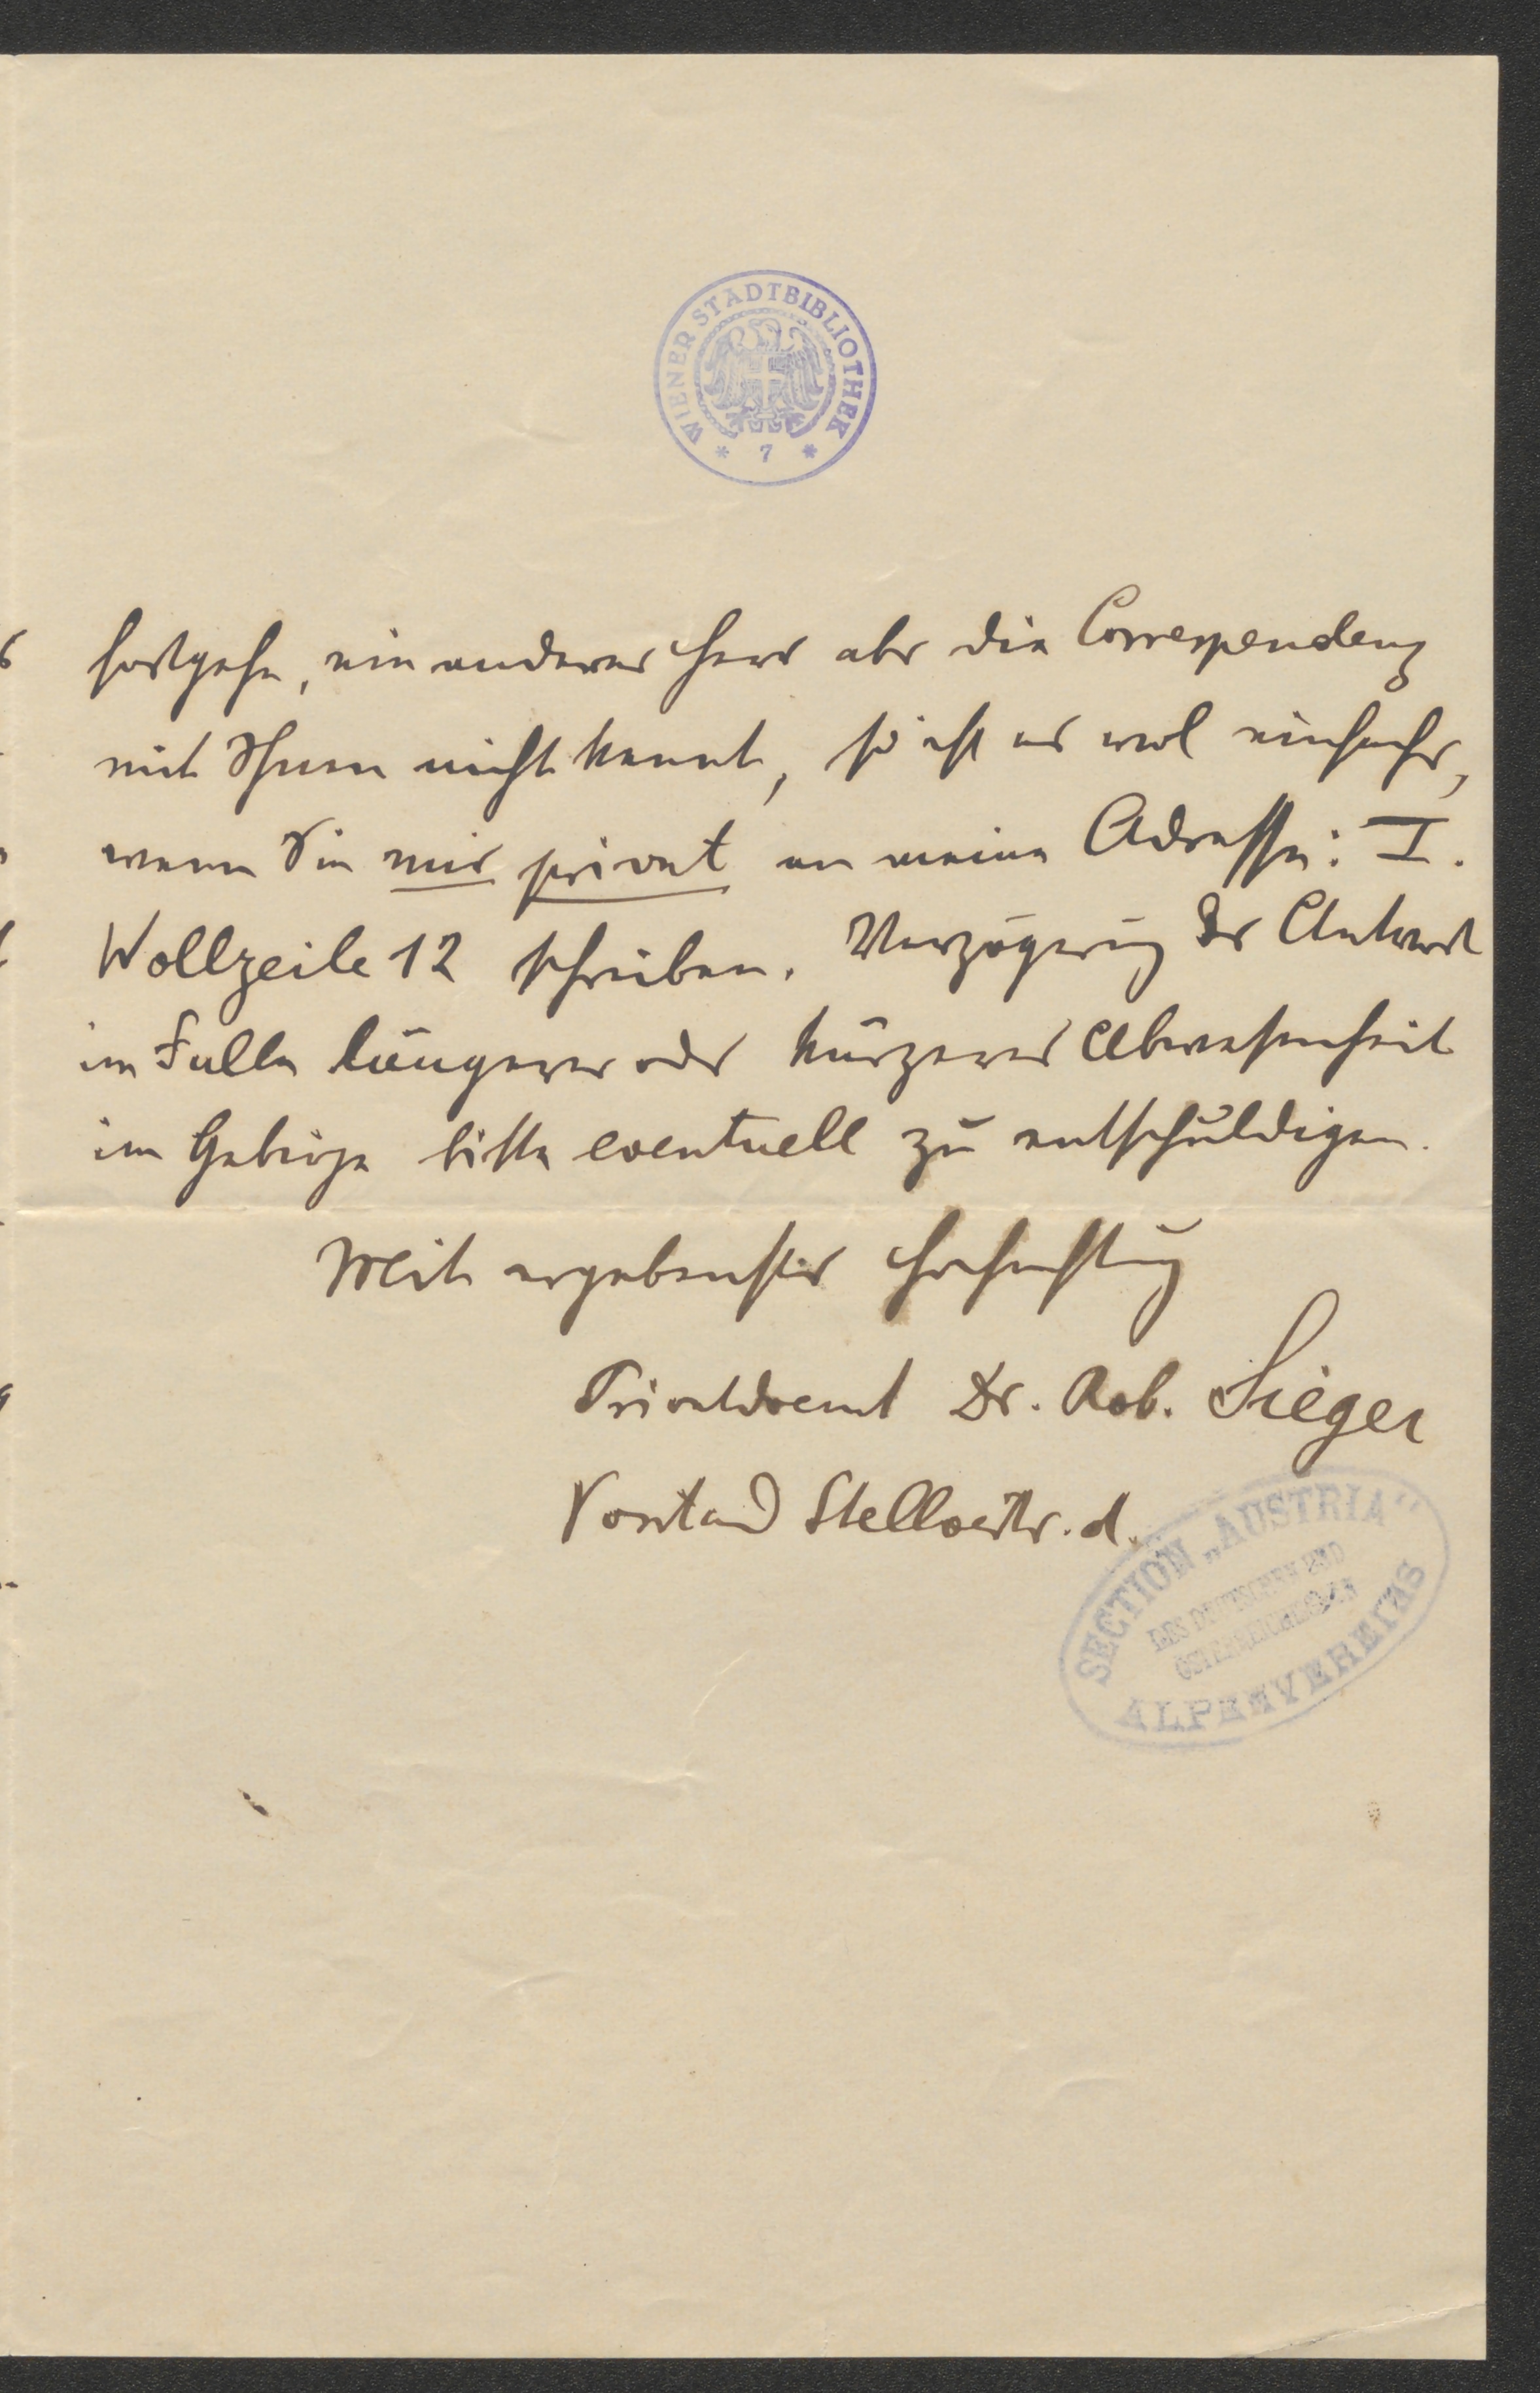 WIENER STADTBIBLIOTHEK
* 7 *
fortgehe, ein anderer Herr aber die Correspondenz
mit Ihnen nicht kennt, so ist es wol einfacher,
wenn Sie mir privat an meine Adresse: I.
Wollzeile 12 schreiben. Verzögerung der Antwort
im Falle längerer oder kürzerer Abwesenheit
im Gebirge bitte eventuell zu entschuldigen.
Mit ergebenster Hochachtung
Privatdocent Dr. Rob. Sieger
Vorstand Stellvertr. d.
SECTION „AUSTRIA“
DES DEUTSCHEN UND
ÖSTERREICHISCHEN
ALPENVEREINS